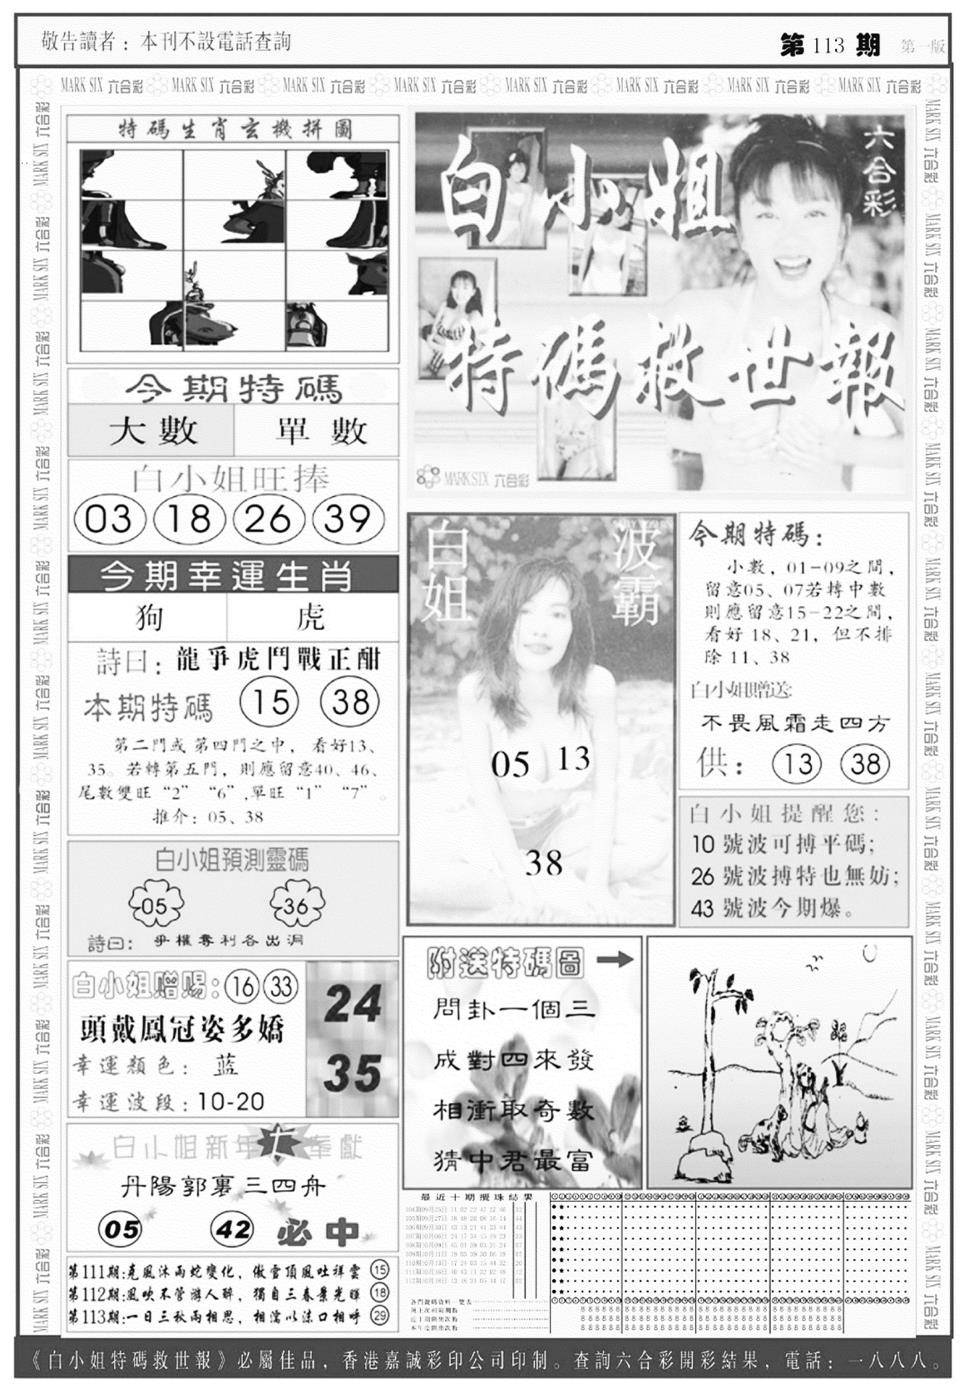 敬告讀者：本刊不設電話查詢
第113期 第一版
MARK SIX 六合彩 MARK SIX 六合彩 MARK SIX 六合彩 MARK SIX 六合彩 MARK SIX 六合彩 MARK SIX 六合彩 MARK SIX 六合彩 MARK SIX 六合彩
特碼生肖玄機拼圖
六合彩
白小姐
特碼救世報
MARK SIX 六合彩
今期特碼
大數 單數
白小姐旺捧
03 18 26 39
今期幸運生肖
狗 虎
詩曰：龍爭虎鬥戰正酣
本期特碼 15 38
第二門或第四門之中，看好13、
35。若轉第五門，則應留意40、46、
尾數雙旺“2”“6”,單旺“1”“7”。
推介：05、38
白小姐預測靈碼
05 36
詩曰：爭權奪利各出洞
白小姐贈賜：16 33
頭戴鳳冠姿多嬌
幸運顏色：蓝
幸運波段：10-20
24
35
白小姐新年七奉獻
丹陽郭裏三四舟
05 42 必中
第111期:克風沐雨蛇變化，傲雪頂風吐祥雲 15
第112期:風吹不管游人醉，獨自三春景光暉 18
第113期:一日三秋兩相思，相濡以沫口相呼 29
白姐
波霸
05 13
38
今期特碼：
小數，01-09之間，
留意05、07若轉中數
則應留意15-22之間，
看好18、21，但不排
除11、38
白小姐贈送:
不畏風霜走四方
供：13 38
白小姐提醒您：
10號波可搏平碼；
26號波搏特也無妨；
43號波今期爆。
附送特碼圖
問卦一個三
成對四來發
相衝取奇數
猜中君最富
最近十期攪珠結果
《白小姐特碼救世報》必屬佳品，香港嘉誠彩印公司印制。查詢六合彩開彩結果，電話：一八八八。